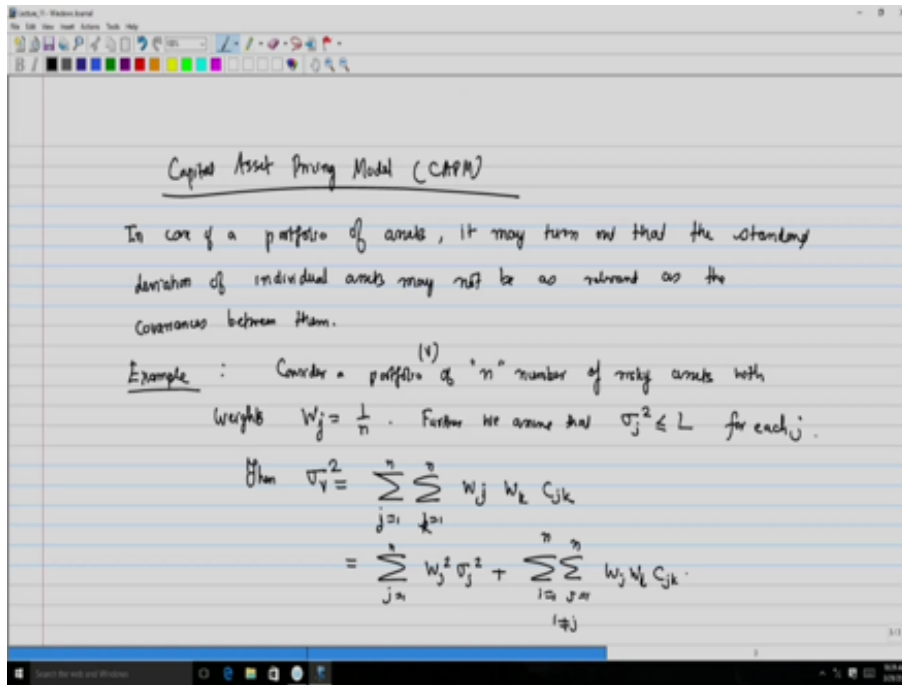 Lecture_11 - Windows Journal
File Edit View Insert Actions Tools Help
B I
Capital Asset Pricing Model (CAPM)
In case of a portfolio of assets, it may turn out that the standard
deviation of individual assets may not be as relevant as the
covariances between them.
(V)
Example : Consider a portfolio of "n" number of risky assets with
weights W_j = 1/n . Further we assume that σ_j^2 ≤ L for each j.
Then σ_V^2 = Σ_{j=1}^{n} Σ_{k=1}^{n} W_j W_k C_{jk}
= Σ_{j=1}^{n} W_j^2 σ_j^2 + Σ_{i=1}^{n} Σ_{j=1}^{n} W_j W_k C_{jk}.
i≠j
Search the web and Windows